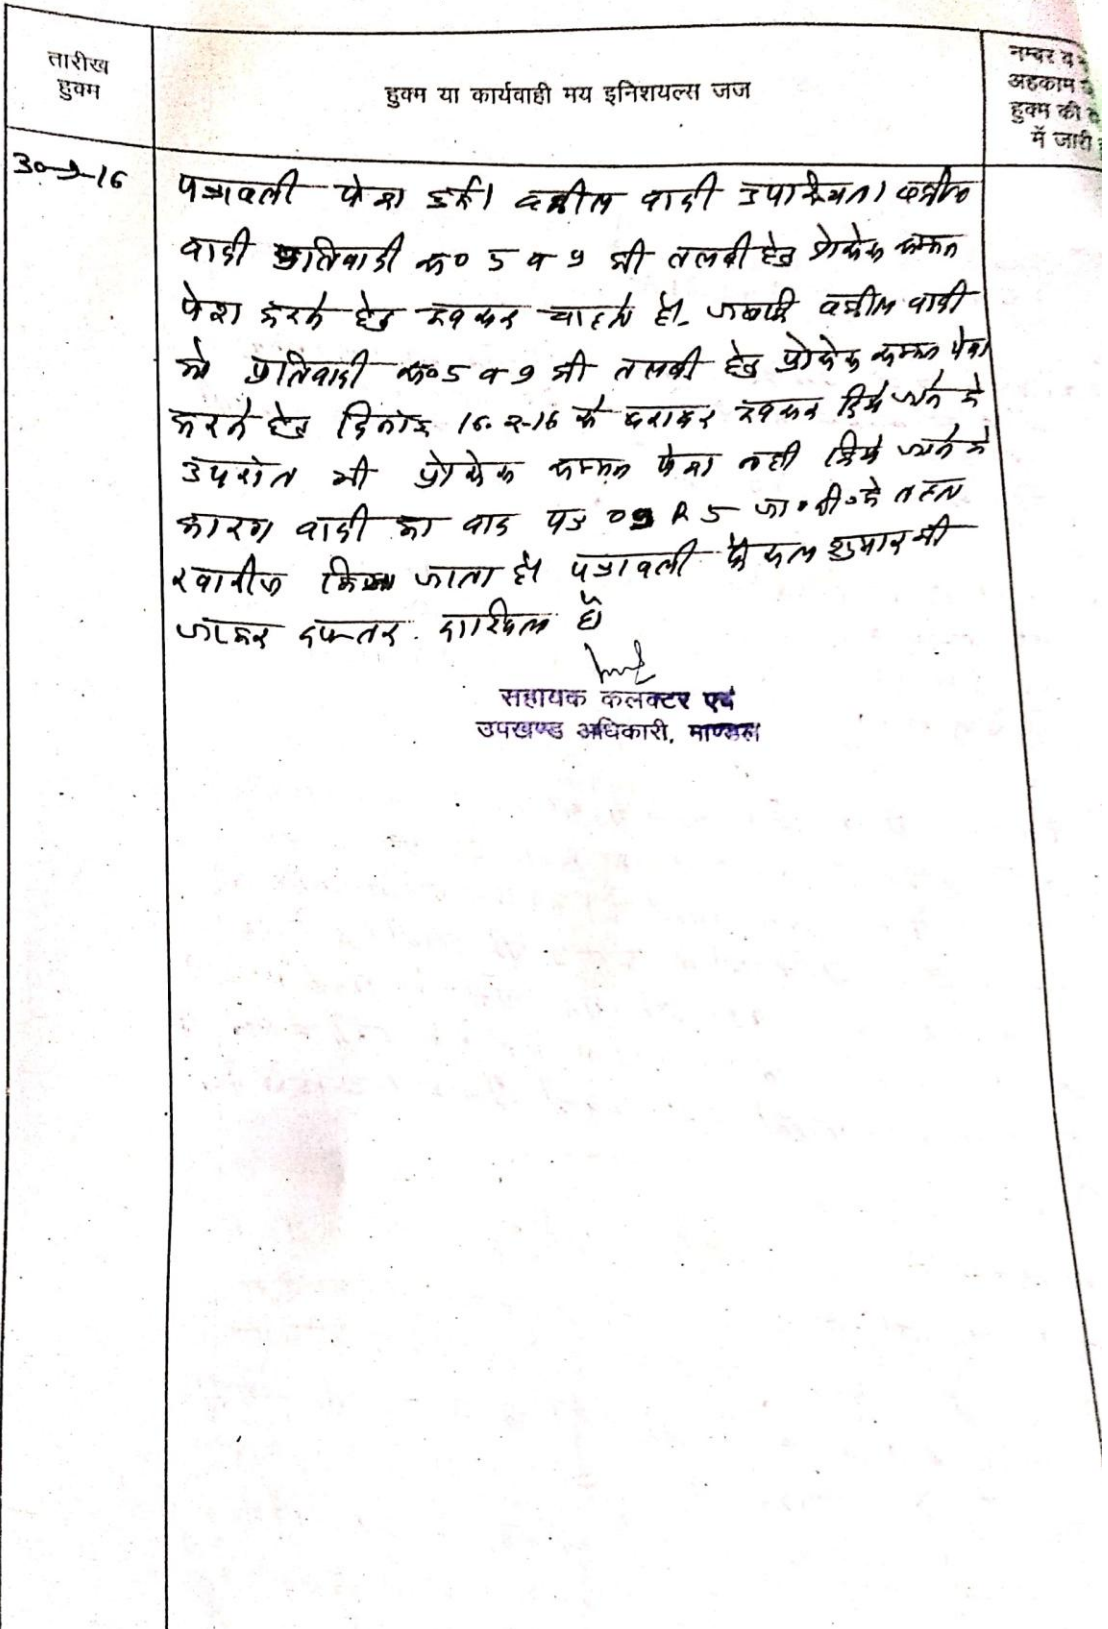 तारीख
हुक्म
हुक्म या कार्यवाही मय इनिशयल्स जज
नम्बर व
अहकाम
हुक्म की
में जारी
30-9-16
पत्रावली पेश हुई। वकील वादी उपस्थित। वकील
वादी प्रतिवादी क्र० 5 व 9 की तलबी हेतु प्रोसेस सम्मन
पेश करने हेतु अवसर चाहते है। जबकि वकील वादी
को प्रतिवादी क्र० 5 व 9 की तलबी हेतु प्रोसेस सम्मन पेश
करने हेतु दिनांक 16.2-16 से बराबर अवसर दिये जाने के
उपरांत भी प्रोसेस सम्मन पेश नही किये जाने के
कारण वादी का वाद पत्र 09 R 5 जा०दी० के तहत
खारीज किया जाता है। पत्रावली फैसल शुमार की
जाकर दफ्तर दाखिल हो
सहायक कलक्टर एवं
उपखण्ड अधिकारी, माण्डल